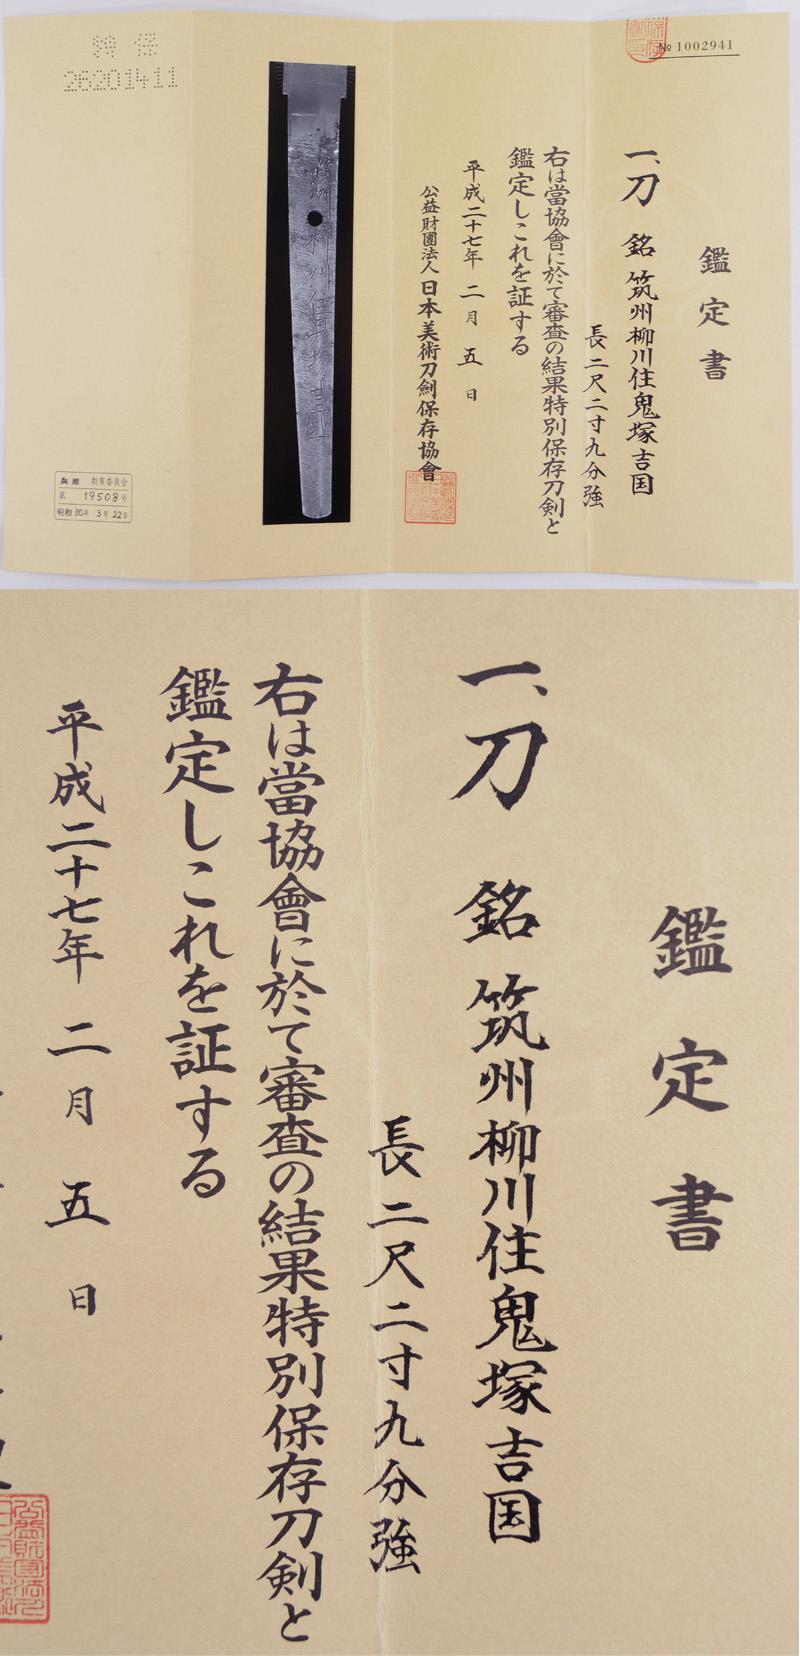 № 1002941
鑑定書
一、刀 銘 筑州柳川住鬼塚吉国
長二尺二寸九分強
右は當協會に於て審査の結果特別保存刀剣と
鑑定しこれを証する
平成二十七年 二月 五日
公益財團法人 日本美術刀劍保存協會
特保
26201411
兵庫 教育委員会
第 19508号
昭和30年 3月22日
鑑定書
一、刀 銘 筑州柳川住鬼塚吉国
長二尺二寸九分強
右は當協會に於て審査の結果特別保存刀剣と
鑑定しこれを証する
平成二十七年 二月 五日